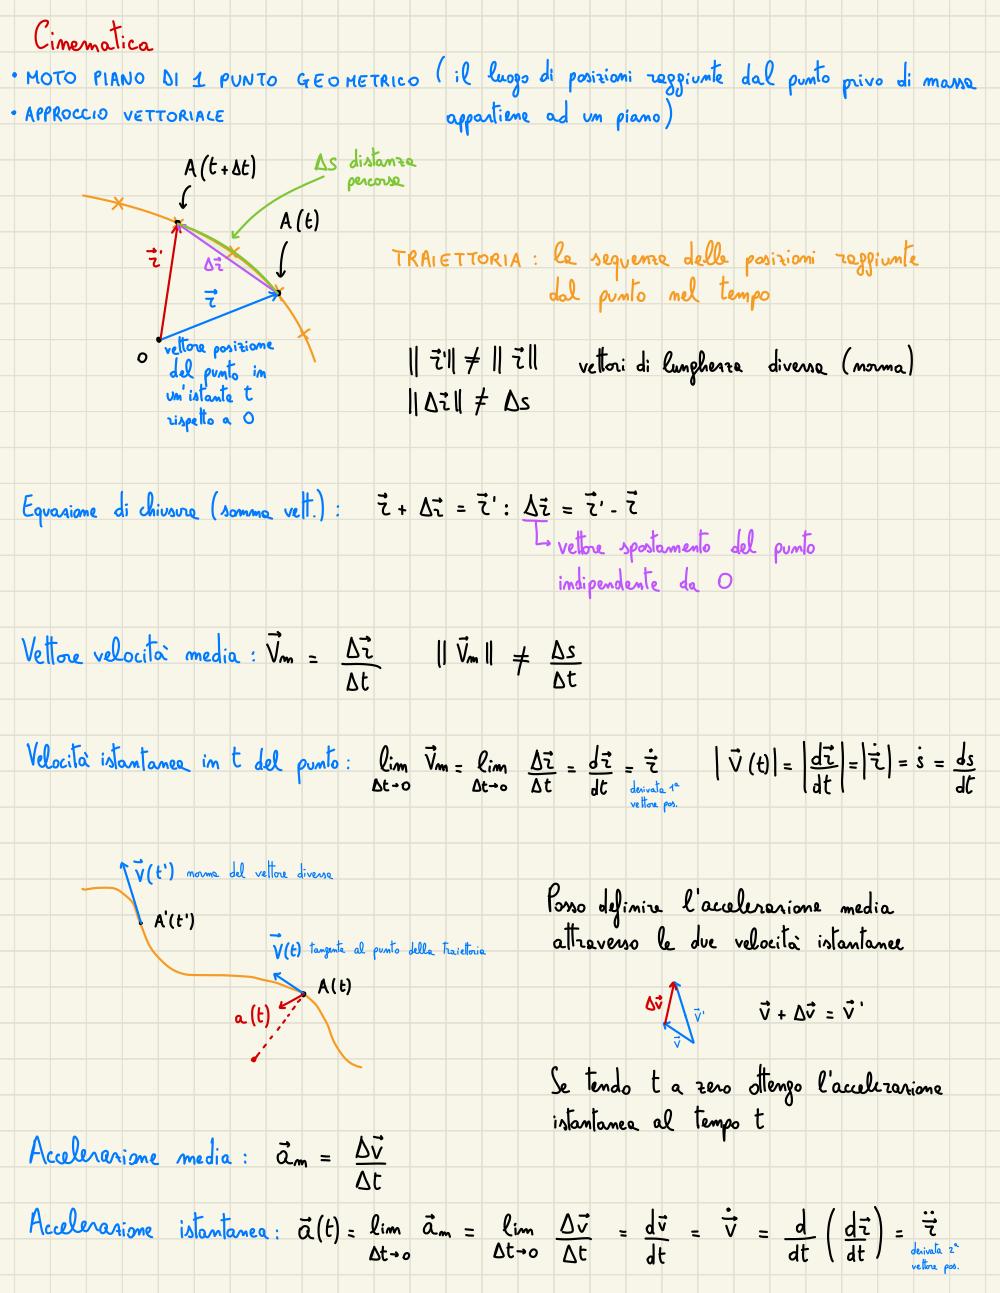 Cinematica
• MOTO PIANO DI 1 PUNTO GEOMETRICO ( il luogo di posizioni raggiunte dal punto privo di massa
• APPROCCIO VETTORIALE appartiene ad un piano)
A(t+Δt)
Δs distanza
percorsa
A(t)
r⃗'
Δr⃗
r⃗
O
vettore posizione
del punto in
un'istante t
rispetto a O
TRAIETTORIA : la sequenza delle posizioni raggiunte
dal punto nel tempo
|| r⃗'|| ≠ || r⃗ || vettori di lunghezza diversa (norma)
|| Δr⃗ || ≠ Δs
Equazione di chiusura (somma vett.) : r⃗ + Δr⃗ = r⃗' : Δr⃗ = r⃗' - r⃗
vettore spostamento del punto
indipendente da O
Vettore velocità media : V⃗m = Δr⃗/Δt || V⃗m || ≠ Δs/Δt
Velocità istantanea in t del punto : lim Δt→0 V⃗m = lim Δt→0 Δr⃗/Δt = dr⃗/dt = ṙ⃗ | V⃗(t)| = |dr⃗/dt| = |ṙ⃗| = ṡ = ds/dt
derivata 1ª
vettore pos.
V⃗(t') norma del vettore diversa
A'(t')
V⃗(t) tangente al punto della traiettoria
A(t)
a(t)
Posso definire l'accelerazione media
attraverso le due velocità istantanee
Δv⃗
v⃗'
v⃗
v⃗ + Δv⃗ = v⃗'
Se tendo t a zero ottengo l'accelerazione
istantanea al tempo t
Accelerazione media : a⃗m = Δv⃗/Δt
Accelerazione istantanea : a⃗(t) = lim Δt→0 a⃗m = lim Δt→0 Δv⃗/Δt = dv⃗/dt = v̇⃗ = d/dt (dr⃗/dt) = r̈⃗
derivata 2ª
vettore pos.